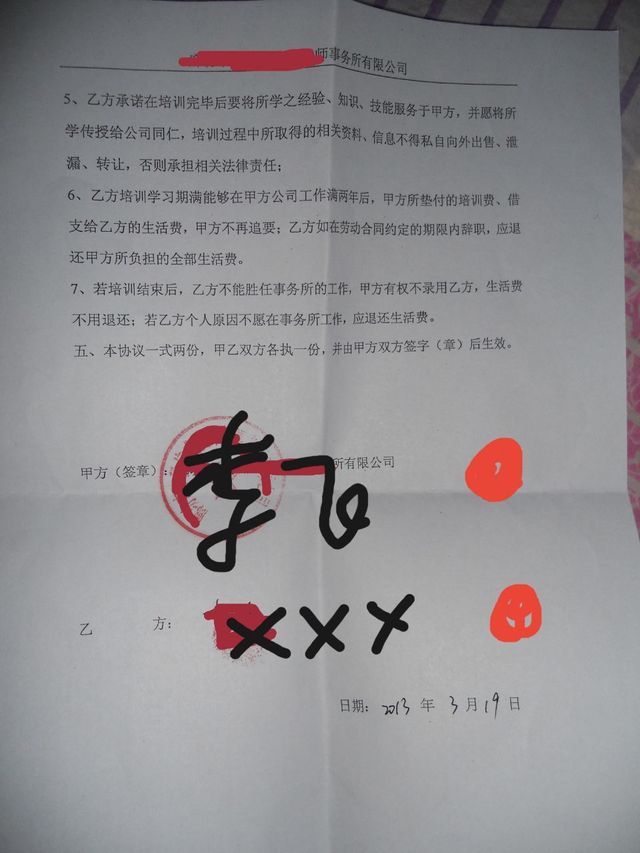 师事务所有限公司
5、乙方承诺在培训完毕后要将所学之经验、知识、技能服务于甲方，并愿将所
学传授给公司同仁，培训过程中所取得的相关资料、信息不得私自向外出售、泄
漏、转让，否则承担相关法律责任；
6、乙方培训学习期满能够在甲方公司工作满两年后，甲方所垫付的培训费、借
支给乙方的生活费，甲方不再追要；乙方如在劳动合同约定的期限内辞职，应退
还甲方所负担的全部生活费。
7、若培训结束后，乙方不能胜任事务所的工作，甲方有权不录用乙方，生活费
不用退还；若乙方个人原因不愿在事务所工作，应退还生活费。
五、本协议一式两份，甲乙双方各执一份，并由甲方双方签字（章）后生效。
甲方（签章）： 所有限公司
李飞
乙 方： XXX
日期：2013 年 3 月 19 日